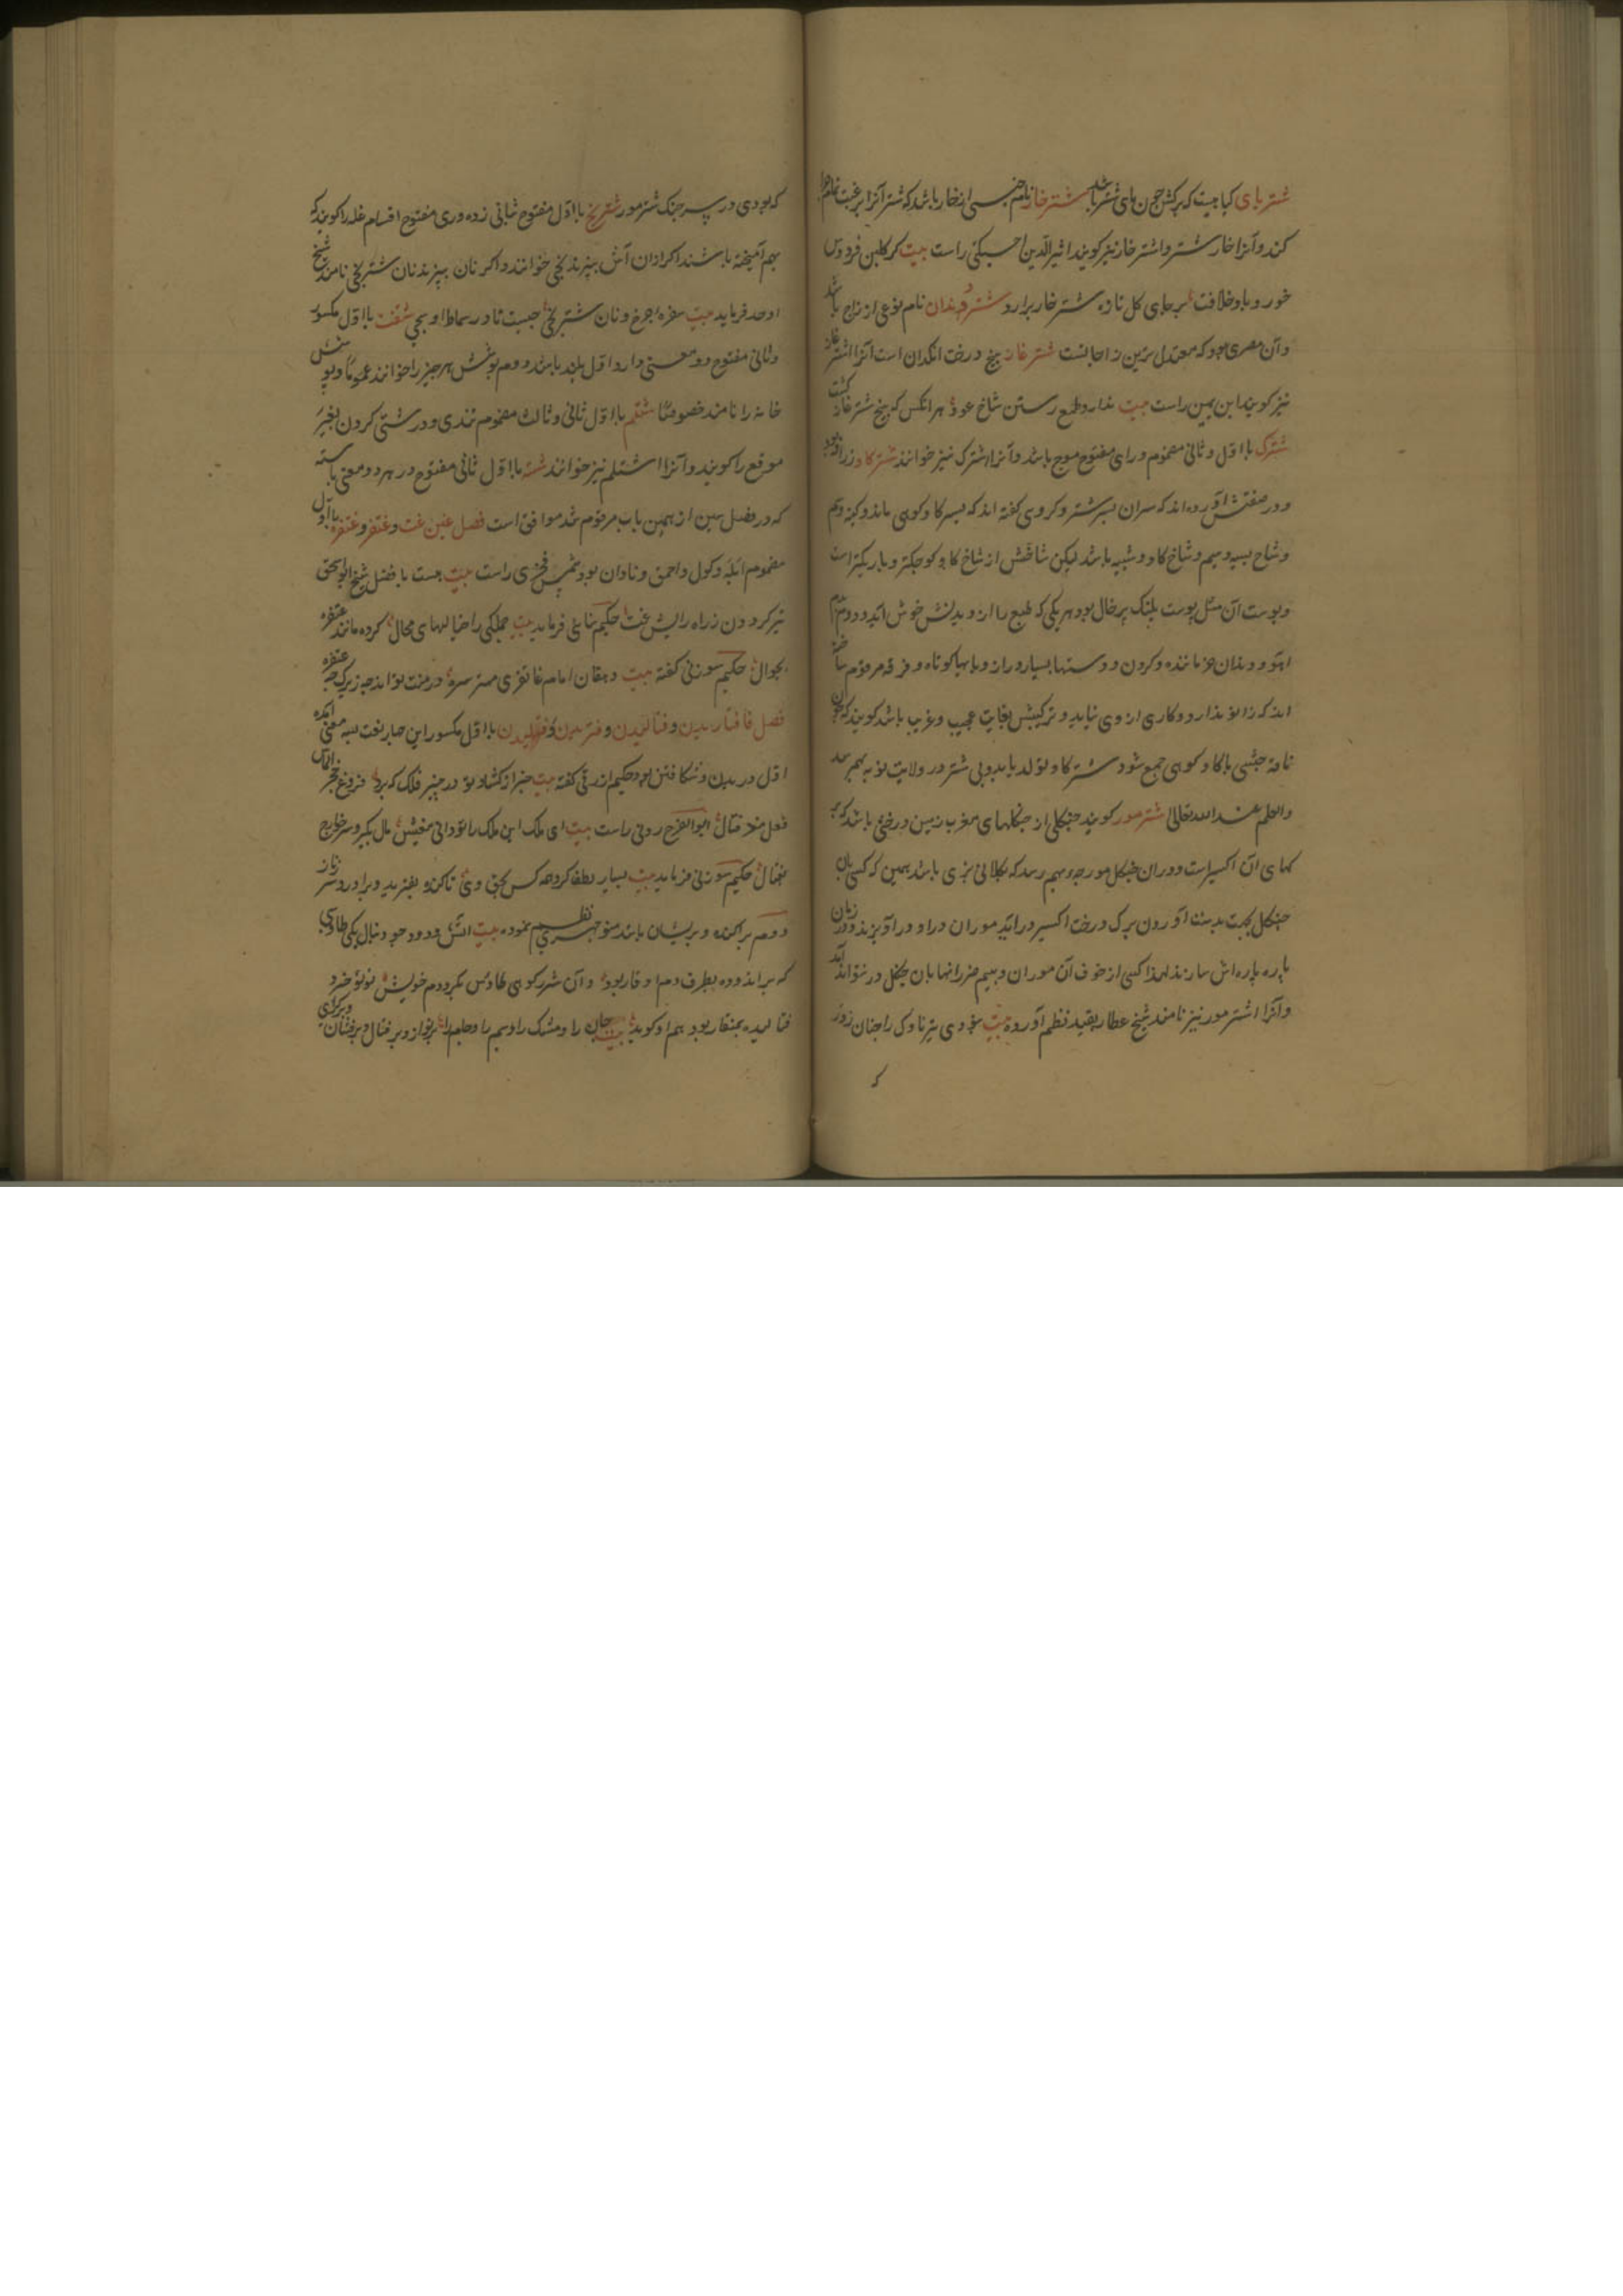 شتربای کیا هیست که برکش چون پای شتر باشد شترخار نام جنسی از خار باشد که شتر آنرا برغبت تمام خوا
کند و آنرا خار شتر و اشترخار نیز کویند اثیر الدین اخسیکتی راست بیت کر کلبن فردوس
خورد باد خلافت بر جای کل تازه شترخار برارد شتردندان نام نوعی از زاج باشد
و آن مصری بود که معتدل ترین زاجا است شترغاز بیخ درخت انکدان است آنرا اشترغاز
نیز کویند ابن یمین راست بیت ندارد طمع رستن شاخ عود هر انکس که بیخ شترغاز کشت
شترک با اول و ثانی مضموم و رای مفتوح موج باشد و آنرا اشترک نیز خوانند شترکاو زرافه بود
و در صفتش آورده اند که سران بسر شتر و کروهی کفته اند که بسر کاو کوهی ماند و کینه و دم
و شاخ بسپه و سم و شاخ کاو و شبیه باشد لیکن شاخش از شاخ کاو کوچکتر و باریکتر است
و پوست آن مثل پوست پلنک پرخال بود هر یکی که طبع را از دیدنش خوش آید و دم
آهو و دندان مانده و کردن و دستها بسیار دراز و پایها کوتاه و مرقوم ساخته
اند که زانو ندارد و کاری از وی نیاید و ترکیبش بغایت عجیب و غریب باشد کویند که چون
ناقه حبشی با کاو کوهی جمع شود شترکاو تولد یابد و بی شتر در ولایت نوبه بهم رسد
والعلم عند الله تعالی شترمور کویند جنکلی از جنکلهای مغرب زمین درختی باشد که بر
کهای آن اکسیر است و دران جنکل مورچه بهم رسد که بکلانی بزی باشد بهمین که کسی بان
جنکل بجهت بدست آوردن برک درخت اکسیر در آید موران در او در آویزند و در زمان
پاره پاره اش سازند لهذا کسی از خوف آن موران و بیم ضرر آنها بان جنکل در نتواند آمد
و آنرا اشترمور نیز نامند شیخ عطار بقید نظم آورده بیت بودی تیر ناوک را چنان زور
که بودی در پس جنک شترمور شتریخ با اول مفتوح بثانی زده و ری مفتوح اقسام غله را کویند که
بهم آمیخته باشند اکر ازان آش بپزند یخی خوانند و اکر نان بپزند نان شتریخی نامند شیخ
اوحد فرماید بیت سفره چرخ و نان شتریخی چیست تا در سماط او یخی شفت با اول مکسور
و ثانی مفتوح دو معنی دارد اول بلند باشد دوم پوشش هر چیز را خوانند عموما و پوشش
خانه را نامند خصوصا شتلم با اول ثانی و ثالث مضموم تندی و درشتی کردن بغیر
موقع را کویند و آنرا اشتلم نیز خوانند شته با اول ثانی مفتوح در هر دو معنی با سته
که در فصل سین از همین باب مرقوم شد موافق است فصل غین غت و غتفر و غتفره با اول
مضموم ابله و کول و احمق و نادان بود شمس فخری راست بیت هست با فضل شیخ ابو اسحق
تیر کردون زراه رایش غت حکیم سنائی فرماید بیت جملکی را خیالهای محال کرده مانند غتفره
بجوال حکیم سوزنی کفته بیت دهقان امام غاتفری مهتر سره در منت تواند چه زیرک چه غتفره
فصل فا فتاریدن و فتالیدن و فتریدن و فتلیدن با اول مکسور این چهار لغت بسه معنی آمده
اول دریدن و شکافتن بود حکیم ازرقی کفته بیت جز از کشاد تو در چنبر فلک که برد فروغ خنجر الماس
فعل مثل فتال ابو الفرج رونی راست بیت ای ملک این ملک را تو دانی معیش مال بکیر و سر خوارج
بفتال حکیم سوزنی فرماید بیت بسیار
دوم پراکنده و پریشان باشد منوچهری نظم نموده بیت آتش و دود چو دنبال یکی طاوسی
که براندوده بطرف دم او قار بود و آن شرر کوی طاوس بکرد دم خویش لولو خرد
فتالیده بمنقار بود هم او کوید بیت